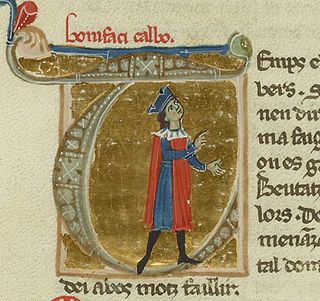 bonifaci calbo.
Emps e
bers. s
nen dir
ma faiz
on es g
Beutatz
lors. De
menāz
tal dom
dei abos motz taillir.